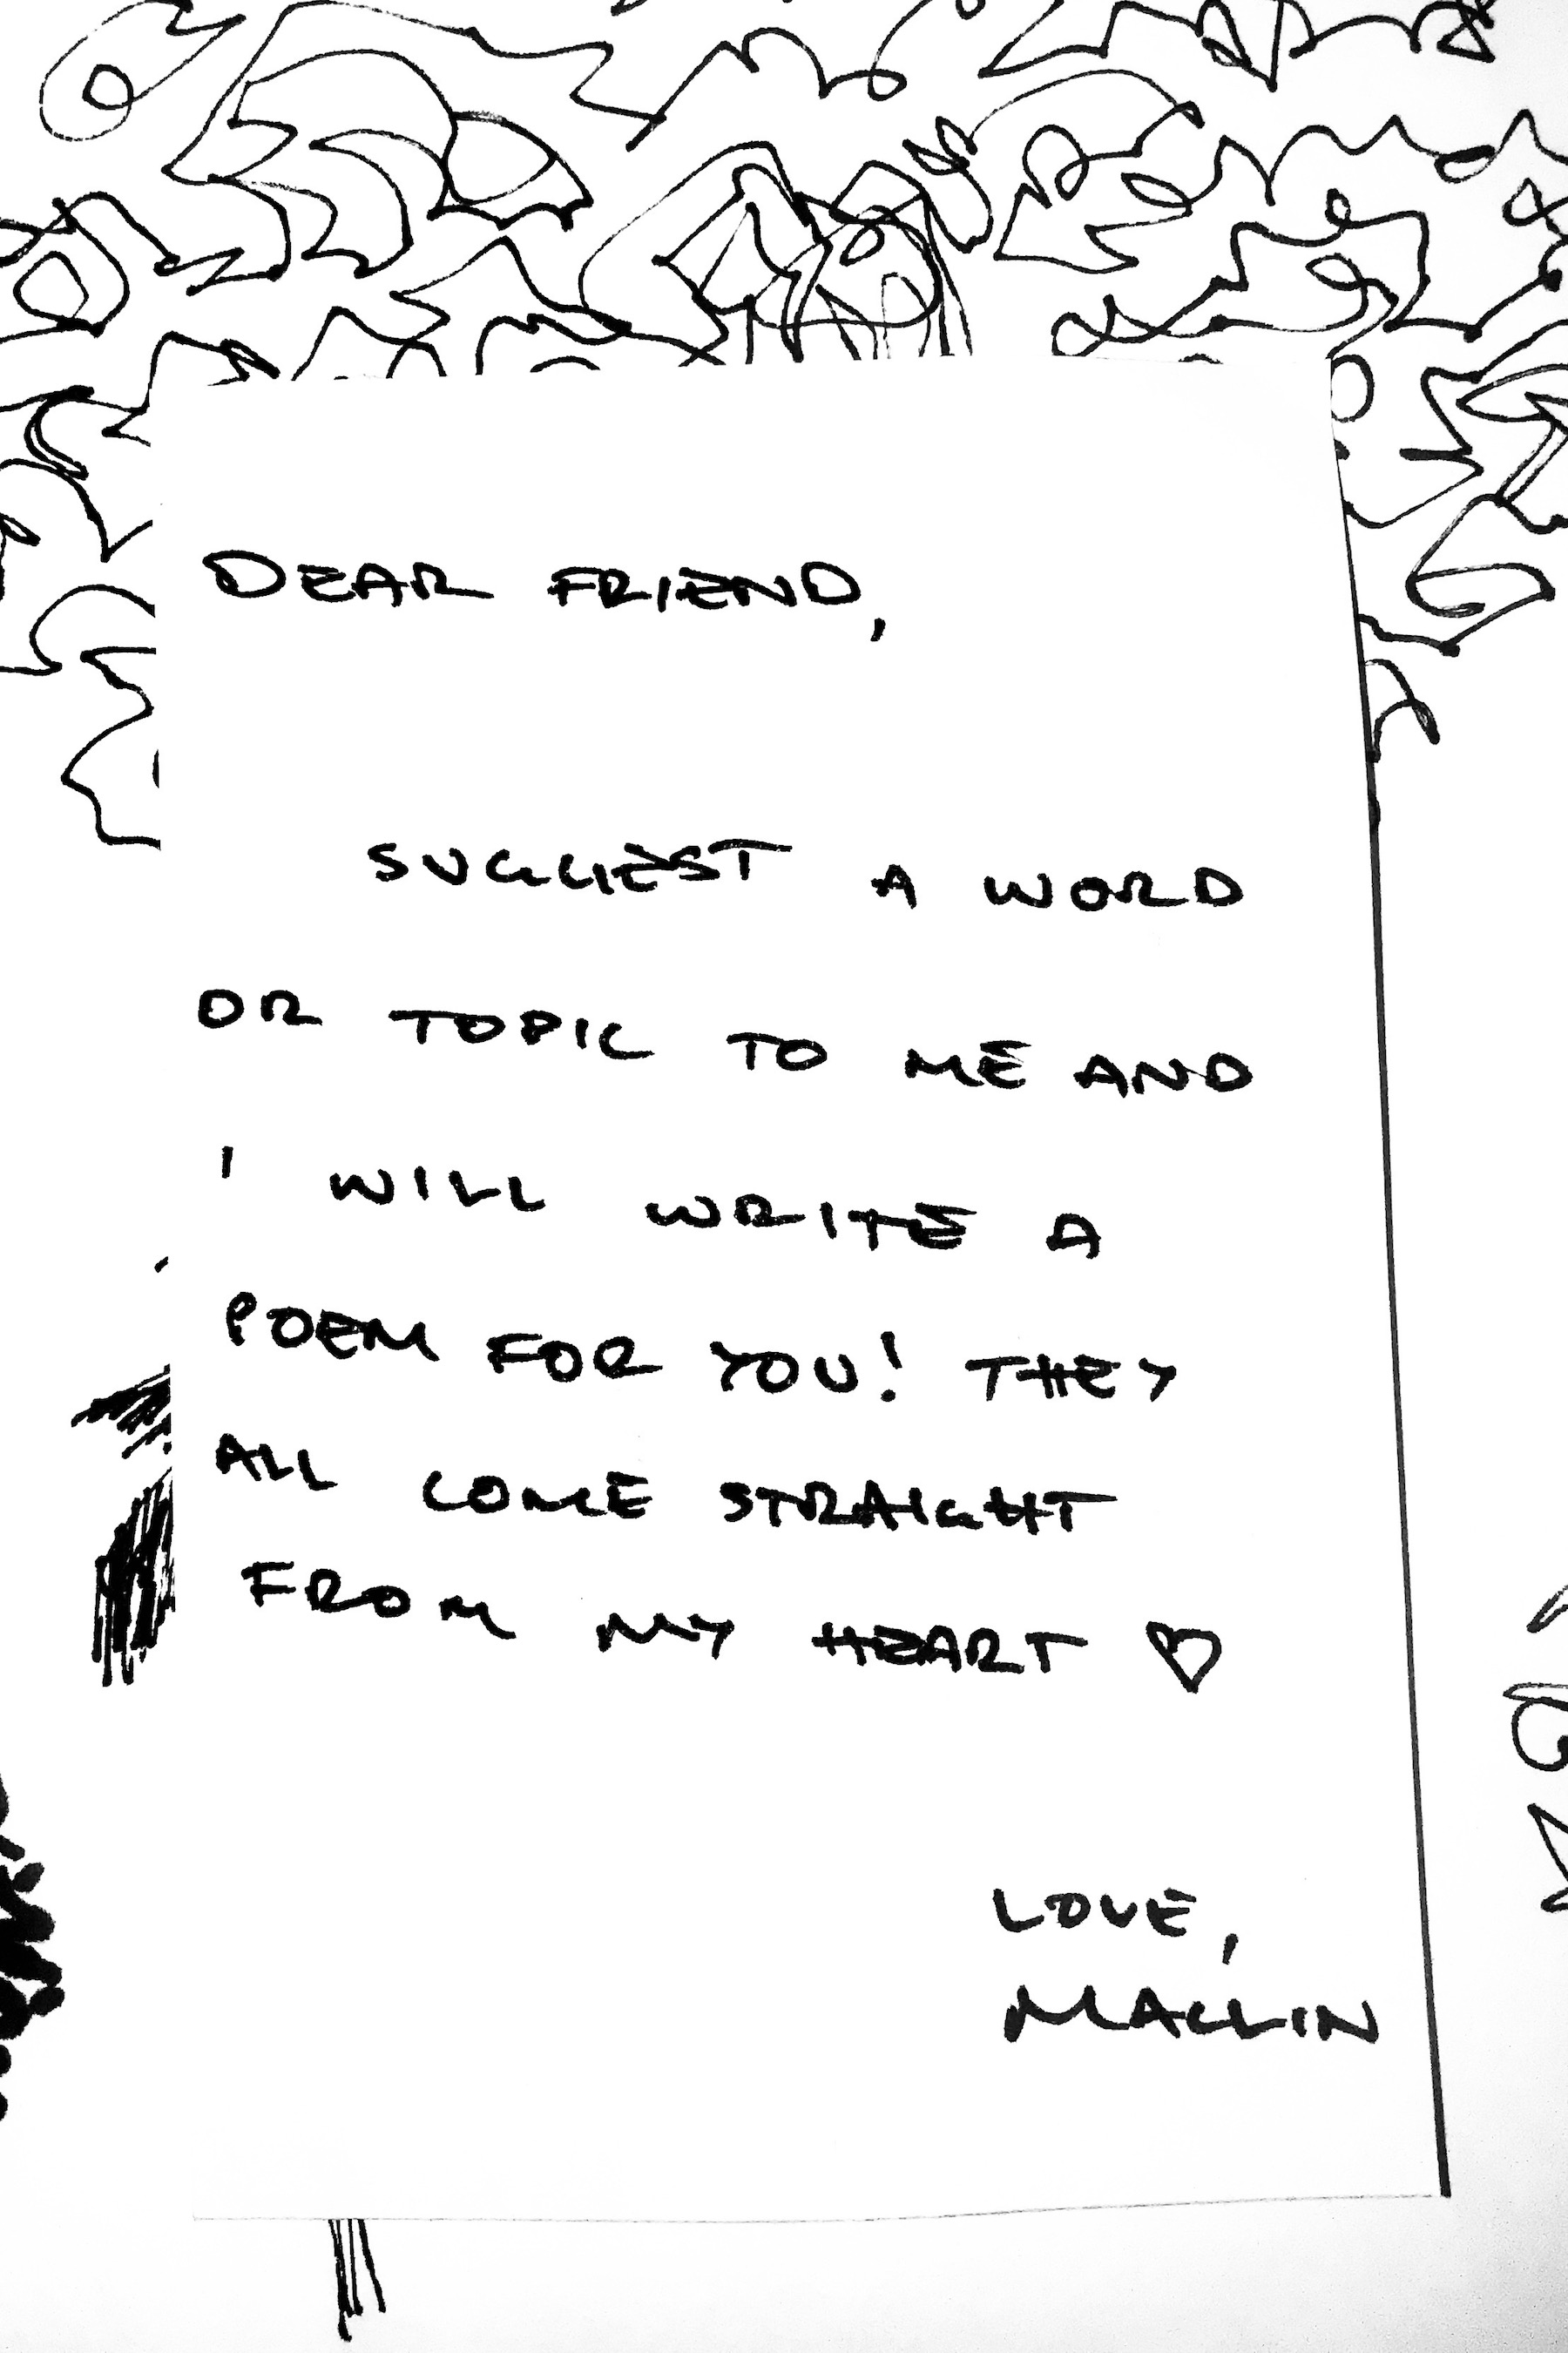 DEAR FRIEND,
SUGGEST A WORD
OR TOPIC TO ME AND
I WILL WRITE A
POEM FOR YOU! THEY
ALL COME STRAIGHT
FROM MY HEART ♡
LOVE,
MALLIN